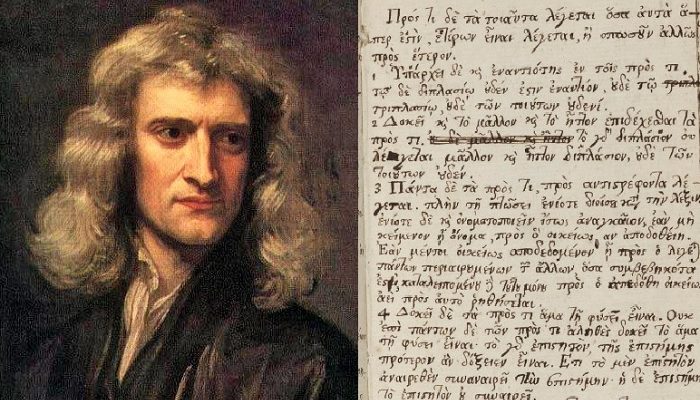 Πρός τι δὲ τὰ τοιαῦτα λέγεται ὅσα αὐτὰ ἅ-
περ ἐςὶν, ἑτέρων εἶναι λέγεται, ἢ ὁπωσοῦν ἄλλως
πρὸς ἕτερον.
1 Ὑπάρχει δὲ κ̀ ἐναντιότης ἐν τοῖς πρὸς τι.
τῷ διπλασίῳ ὐδέν ἐςιν ἐναντίον, ὐδὲ τῷ
τριπλασίῳ, ὐδὲ τῶν τοιύτων ὐδενί.
2 Δοκεῖ κ̀ τὸ μᾶλλον κ̀ τὸ ἧττον ἐπιδέχεσθαι τὰ
πρός τι. τὸ διπλάσιον
λέγεται μᾶλλον κ̀ ἧττον διπλάσιον, ὐδὲ τῶν
τοιύτων ὐδέν.
3 Πάντα δὲ τὰ πρός τι, πρὸς ἀντιςρέφοντα λέ-
γεται. πλὴν τῇ πτώσει ἐνίοτε διοίσει τὴν λέξιν
ἐνίοτε δὲ κ̀ ὀνοματοποιεῖν ἴσως ἀναγκαῖον, ἐὰν μὴ
κείμενον ᾖ ὄνομα, πρὸς ὃ οἰκείως ἂν ἀποδοθείη.
Ἐὰν μέντοι οἰκείως ἀποδεδομένον ᾖ πρὸς ὃ λέγε
πάντων περιαιρυμένων τ̃ ἄλλων ὅσα συμβεβηκότα
ἐςὶ, καταλειπομένυ τύτυ μόνυ πρὸς ὃ ἀπεδόθη οἰκείως
ἀεὶ πρὸς αὐτὸ ῥηθήσεται.
4 Δοκεῖ δὲ τὰ πρός τι ἅμα τῇ φύσει εἶναι. Οὐκ
ἐπὶ πάντων δὲ τῶν πρός τι ἀληθὲς δοκεῖ τὸ ἅμα
τῇ φύσει εἶναι. τὸ γὸ̀ ἐπιςητὸν, τῆς ἐπιςήμης
πρότερον ἂν δόξειεν εἶναι. Ἔτι τὸ μὲν ἐπιςητὸν
ἀναιρεθὲν συναναιρεῖ τὴν ἐπιςήμην ἡ δὲ ἐπιςήμη
τὸ ἐπιςητὸν ὐ συναιρεῖ.